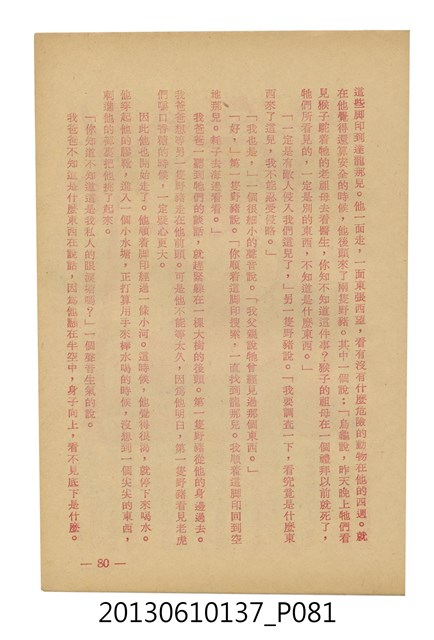 這些脚印到達龍那兒。他一面走，一面東張西望，看有沒有什麼危險的動物在他的四週。就
在他覺得還算安全的時候，他後頭來了兩隻野豬。其中一個說：「烏龜說，昨天晚上牠們看
見猴子駝着牠的老祖母去看醫生，你知不知道這件事？猴子的祖母在一個禮拜以前就死了，
牠們所看見的，一定是別的東西，不知道是什麼東西。」
「一定是有敵人侵入我們這兒了，」另一隻野豬說。「我要調查一下，看究竟是什麼東
西來了這兒，我不能忍受侵略。」
「我也是，」一個很細小的聲音說。「我父親說牠曾經見過那個東西。」
「好，」第一隻野豬說。「你順着這脚印搜索，一直找到龍那兒。我順着這脚印回到空
地那兒。耗子去海邊看看。」
我爸爸一聽到牠們的談話，就趕緊躲在一棵大樹的後頭。第一隻野豬從他的身邊過去。
我爸爸想等另一隻野豬走在他前頭，可是他不能等太久，因爲他明白，第一隻野豬看見老虎
們嚼口香糖的時候，一定疑心更大。
因此他也開始走了。他順着脚印經過一條小河。這時候，他覺得很渴，就停下來喝水。
他穿起他的膠鞋，進入一個小水塘，正打算用手來棒水喝的時候，沒想到一個尖尖的東西，
刺進他的褲裏把他挑了起來。
「你知道不知道這是我私人的眼淚塘嗎？」一個聲音生氣的說。
我爸爸不知道是什麼東西在說話，因爲他離在半空中，身子向上，看不見底下是什麼。
— 80 —
20130610137_P081